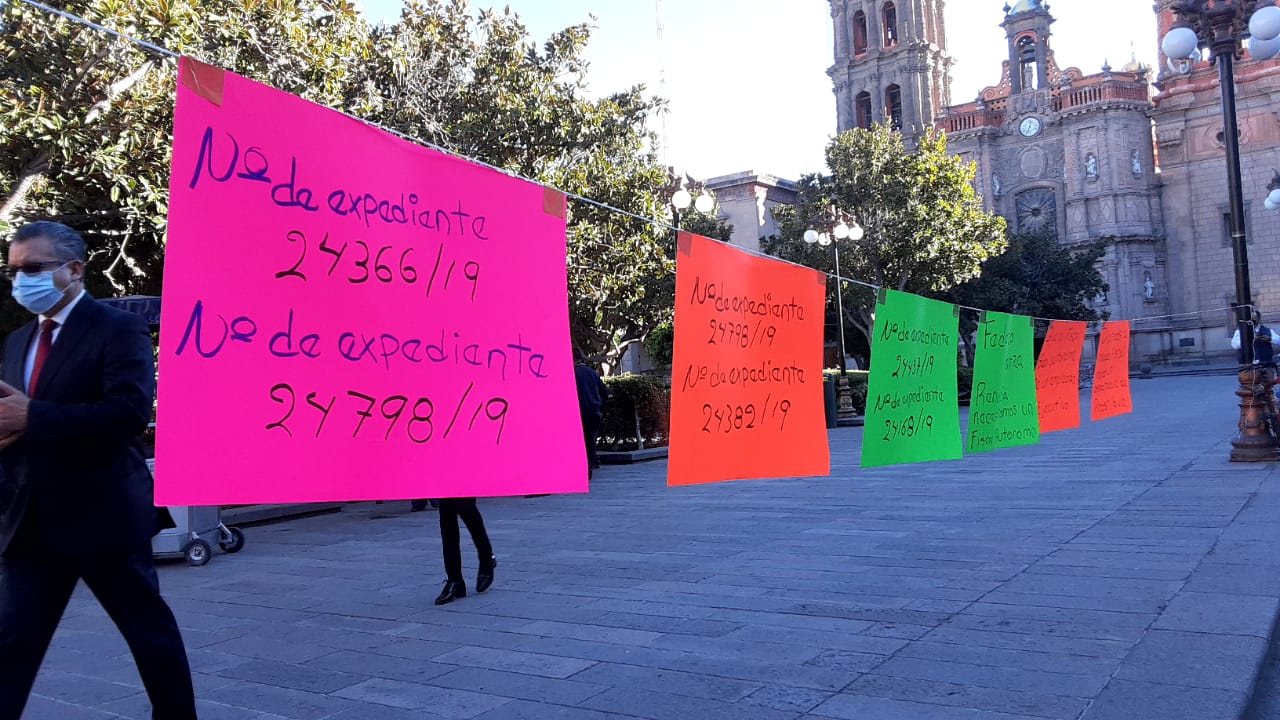 Nº de expediente
24366/19
Nº de expediente
24798/19
Nº de expediente
24798/19
Nº de expediente
24382/19
Nº de expediente
24437/19
Nº de expediente
24168/19
Fede
Ranjía
necesitamos un
Fiscal Autonomo